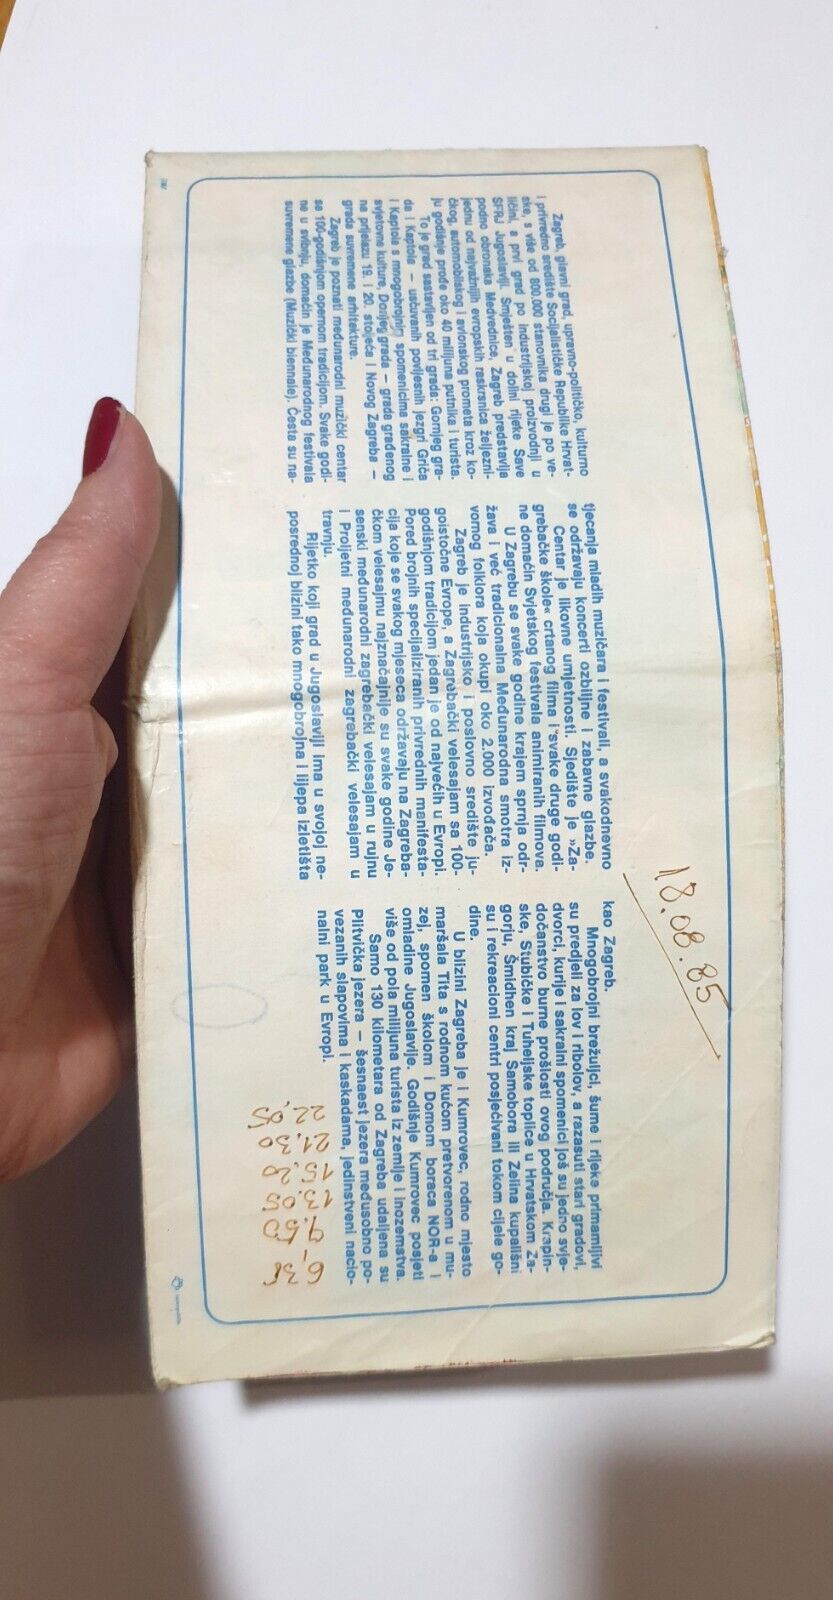 Zagreb, glavni grad, upravno-političko, kulturno
i privredno središte Socijalističke Republike Hrvat-
ske, s više od 800.000 stanovnika drugi je po ve-
ličini, a prvi grad po industrijskoj proizvodnji u
SFRJ Jugoslaviji. Smješten u dolini rijeke Save
podno obronaka Medvednice, Zagreb predstavlja
jednu od najvažnijih evropskih raskrsnica željezni-
čkog, automobilskog i avionskog prometa kroz ko-
ju godišnje prođe oko 40 milijuna putnika i turista.
To je grad sastavljen od tri grada: Gornjeg gra-
da i Kaptola – uščuvanih povijesnih jezgri Griča
i Kaptola s mnogobrojnim spomenicima sakralne i
svjetovne kulture, Donjeg grada – grada građenog
na prijelazu 19. i 20. stoljeća i Novog Zagreba –
grada suvremene arhitekture.
Zagreb je poznati međunarodni muzički centar
sa 100-godišnjom opernom tradicijom. Svake godi-
ne u svibnju, domaćin je Međunarodnog festivala
suvremene glazbe (Muzički biennale). Česta su na-
tjecanja mladih muzičara i festivali, a svakodnevno
se održavaju koncerti ozbiljne i zabavne glazbe.
Centar je likovne umjetnosti. Sjedište je »Za-
grebačke škole« crtanog filma i svake druge godi-
ne domaćin Svjetskog festivala animiranih filmova.
U Zagrebu se svake godine krajem srpnja odr-
žava i već tradicionalna Međunarodna smotra iz-
vornog folklora koja okupi oko 2.000 izvođača.
Zagreb je industrijsko i poslovno središte ju-
goistočne Evrope, a Zagrebački velesajam sa 100-
godišnjom tradicijom jedan je od najvećih u Evropi.
Pored brojnih specijaliziranih privrednih manifesta-
cija koje se svakog mjeseca održavaju na Zagreba-
čkom velesajmu najznačajnije su svake godine Je-
senski međunarodni zagrebački velesajam u rujnu
i Proljetni međunarodni zagrebački velesajam u
travnju.
Rijetko koji grad u Jugoslaviji ima u svojoj ne-
posrednoj blizini tako mnogobrojna i lijepa izletišta
kao Zagreb.
Mnogobrojni brežuljci, šume i rijeke primamljivi
su predjeli za lov i ribolov, a razasuti stari gradovi,
dvorci, kurije i sakralni spomenici još su jedno svje-
dočanstvo burne prošlosti ovog područja. Krapin-
ske, Stubičke i Tuheljske toplice u Hrvatskom Za-
gorju, Šmidhen kraj Samobora ili Zelina kupališni
su i rekreacioni centri posjećivani tokom cijele go-
dine.
U blizini Zagreba je i Kumrovec, rodno mjesto
maršala Tita s rodnom kućom pretvorenom u mu-
zej, spomen školom i Domom boraca NOR-a i
omladine Jugoslavije. Godišnje Kumrovec posjeti
više od pola milijuna turista iz zemlje i inozemstva.
Samo 130 kilometara od Zagreba udaljena su
Plitvička jezera – šesnaest jezera međusobno po-
vezanih slapovima i kaskadama, jedinstveni nacio-
nalni park u Evropi.
18.08.85
9.50
13.05
15.20
21.30
22.05